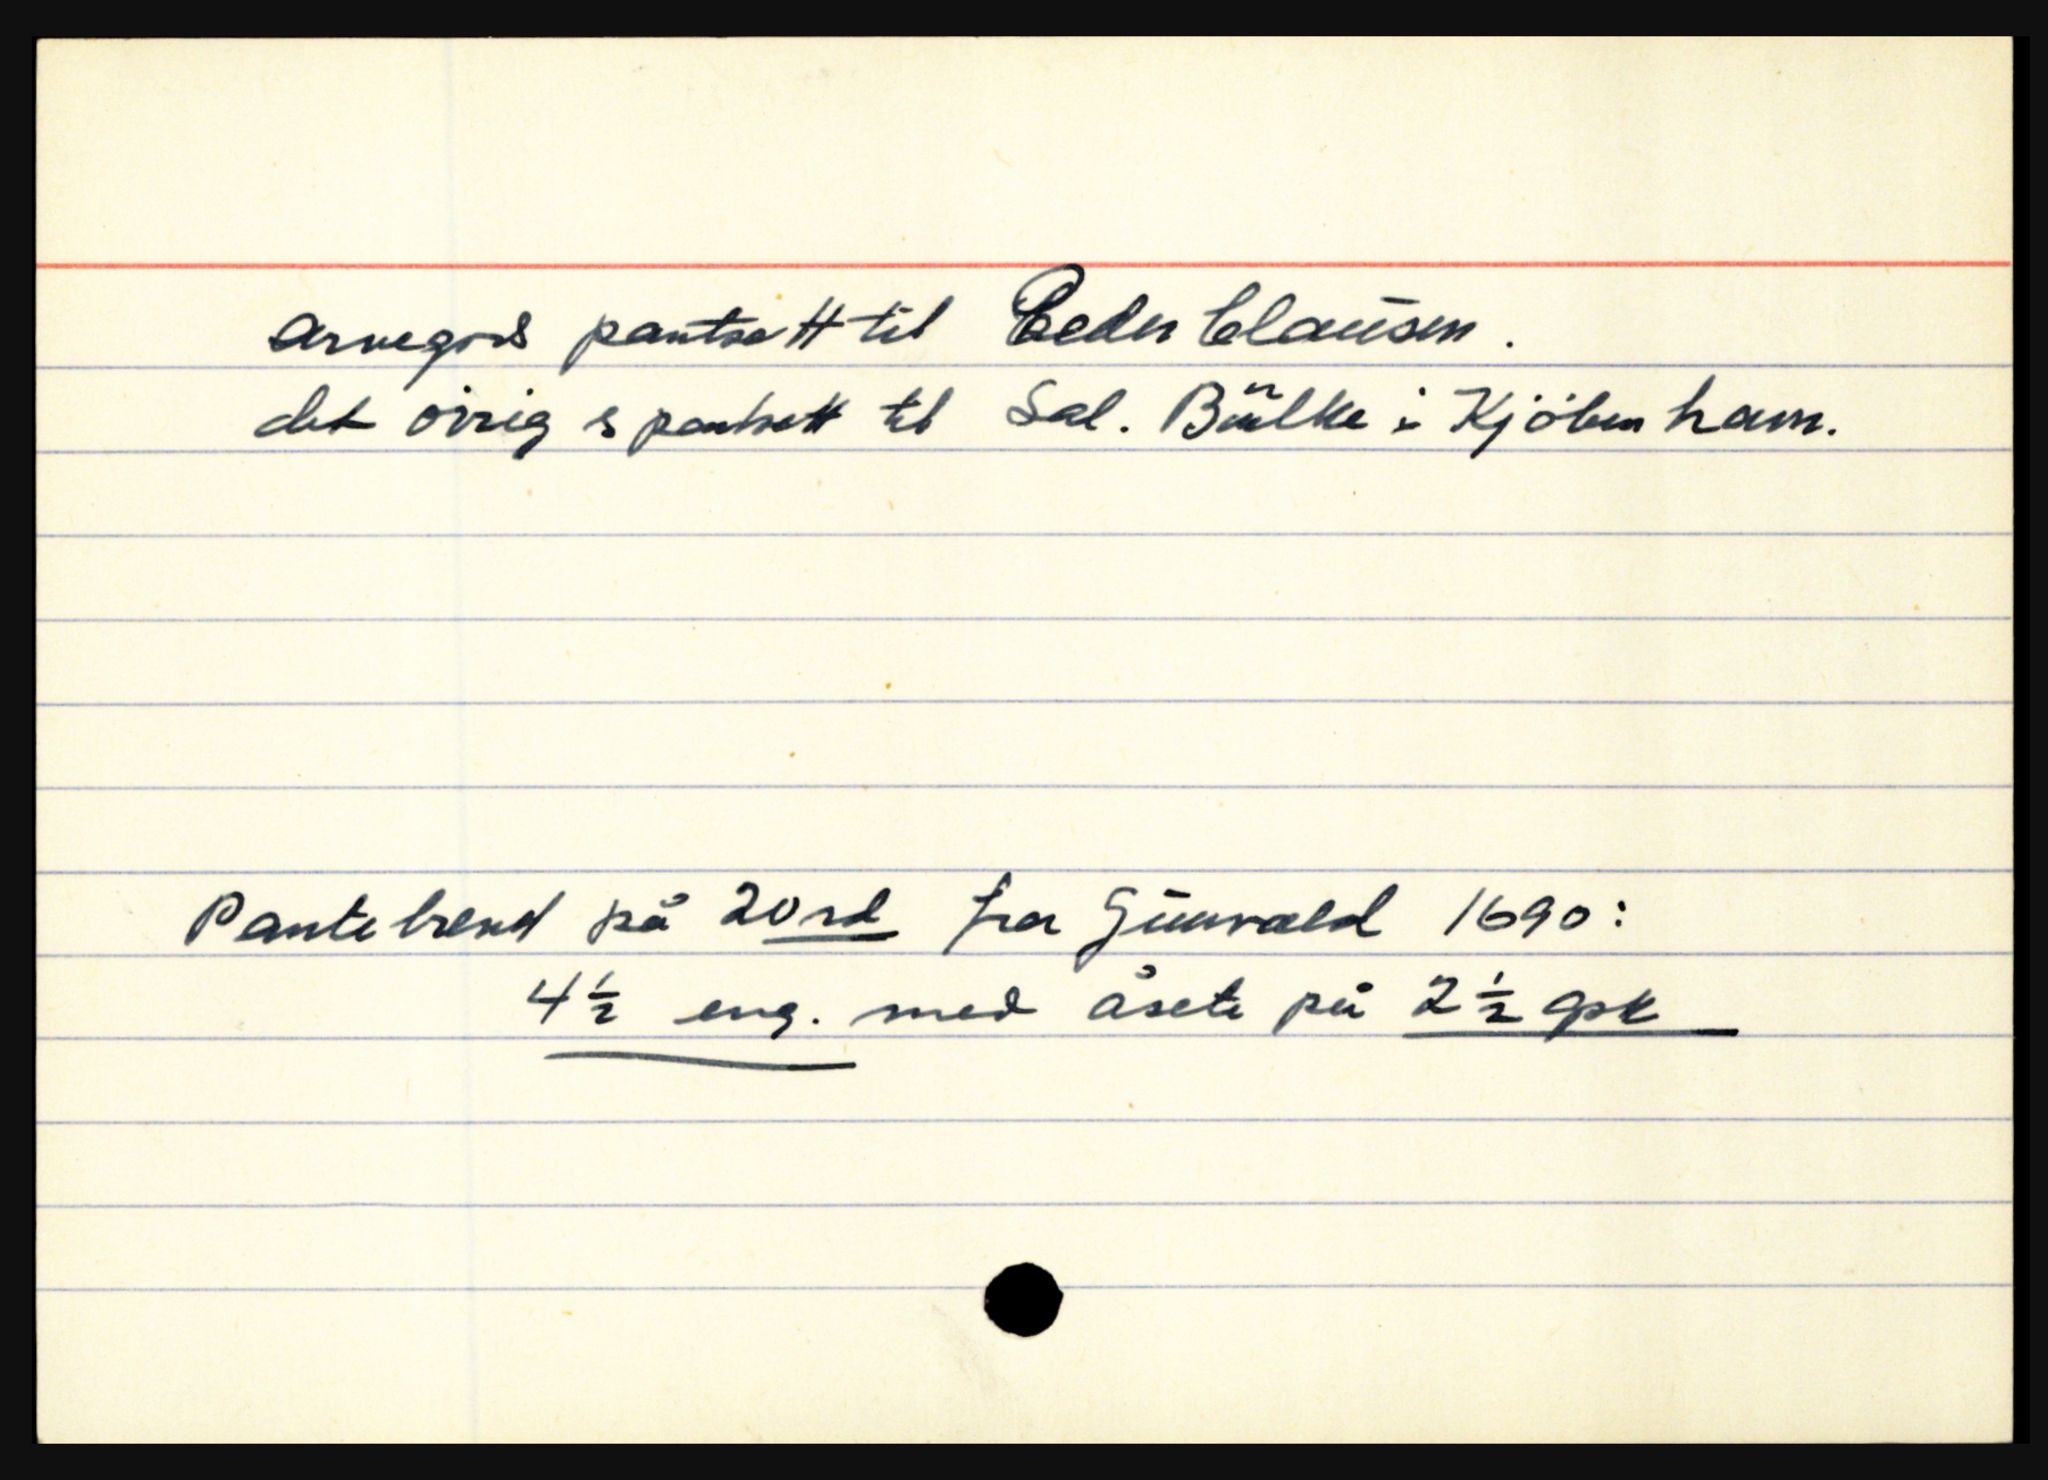 arvegods pantsatt til Peder Clausen.
det øvrig s pantsatt til Sal. Bülke i Kjöbenham.
Pantebrend på 20 rd fra Gunvald 1690:
4½ eng. med åsete på 2½ gsk